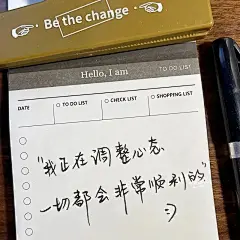 Be the change
Hello, I am
TO DO LIST
DATE
TO DO LIST
CHECK LIST
SHOPPING LIST
"我正在调整心态
一切都会非常顺利的"
:)